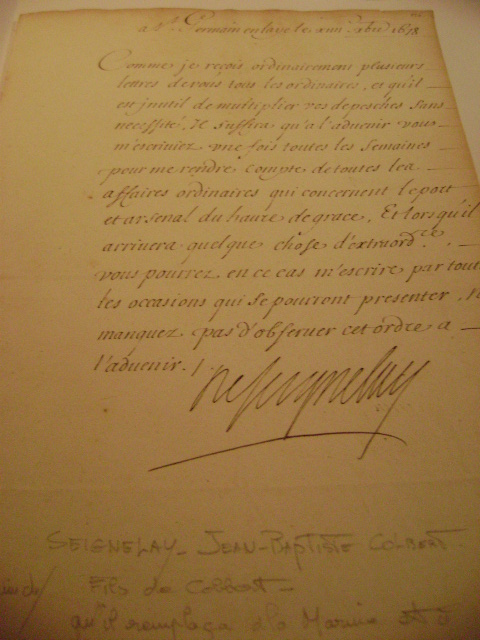 a St. Germain en laye le xiiii xbre 1678
Comme je reçois ordinairement plusieurs
lettres de vous tous les ordinaires, et qu'il
est jnutil de multiplier vos depesches sans
necessité, Il suffira qu'a l'aduenir vous
m'escriuiez vne fois toutes les semaines
pour me rendre compte de toutes les
affaires ordinaires qui concernent le port
et arsenal du haure de grace, Et lorsqu'il
arriuera quelque chose d'extraordre.
vous pourrez en ce cas m'escrire par tout
les occasions qui se pourront presenter,
manquez pas d'obseruer cet ordre a
l'aduenir./.
deseignelay
SEIGNELAY - JEAN-BAPTISTE COLBERT
Fils de Colbert -
qu'il remplaça à la Marine et